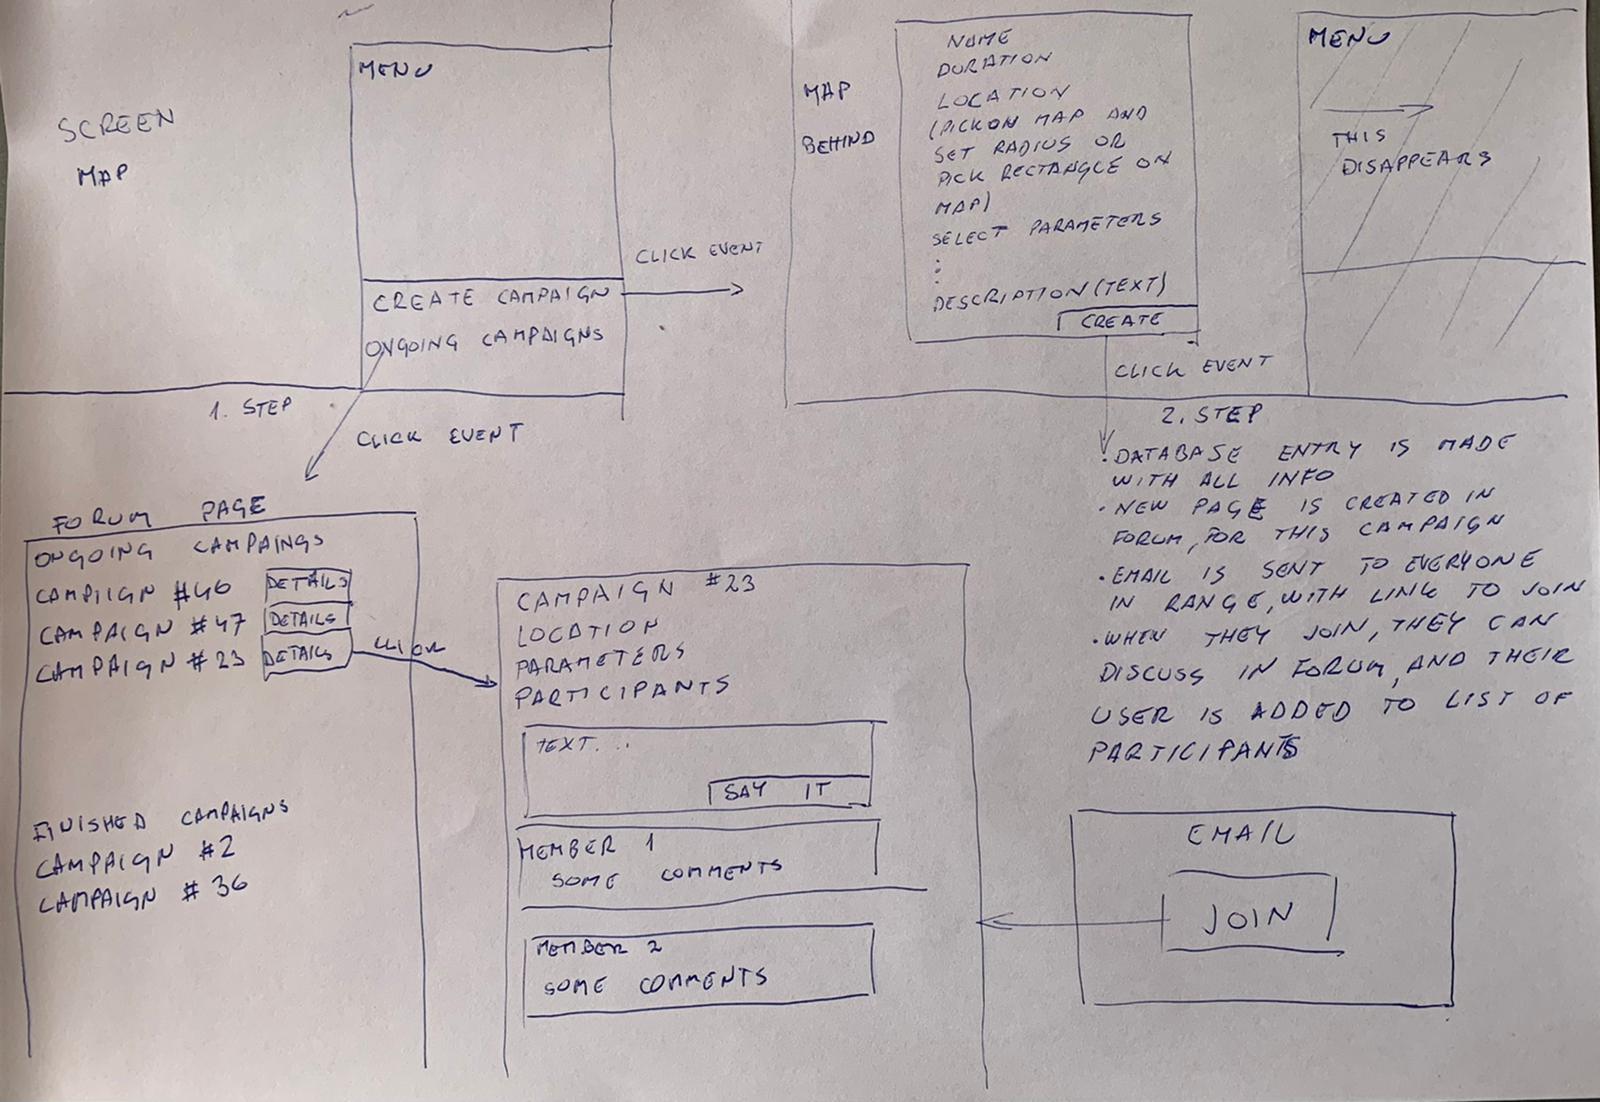 SCREEN
MAP
MENU
CREATE CAMPAIGN
ONGOING CAMPAIGNS
CLICK EVENT
1. STEP
CLICK EVENT
MAP
BEHIND
NAME
DURATION
LOCATION
(PICK ON MAP AND
SET RADIUS OR
PICK RECTANGLE ON
MAP)
SELECT PARAMETERS
:
:
DESCRIPTION (TEXT)
CREATE
CLICK EVENT
MENU
THIS
DISAPPEARS
2. STEP
• DATABASE ENTRY IS MADE
WITH ALL INFO
• NEW PAGE IS CREATED IN
FORUM, FOR THIS CAMPAIGN
• EMAIL IS SENT TO EVERYONE
IN RANGE, WITH LINK TO JOIN
• WHEN THEY JOIN, THEY CAN
DISCUSS IN FORUM, AND THEIR
USER IS ADDED TO LIST OF
PARTICIPANTS
FORUM PAGE
ONGOING CAMPAINGS
CAMPAIGN #46 DETAILS
CAMPAIGN #47 DETAILS
CAMPAIGN #23 DETAILS
FINISHED CAMPAIGNS
CAMPAIGN #2
CAMPAIGN #36
CAMPAIGN #23
LOCATION
PARAMETERS
PARTICIPANTS
TEXT...
SAY IT
MEMBER 1
SOME COMMENTS
MEMBER 2
SOME COMMENTS
EMAIL
JOIN